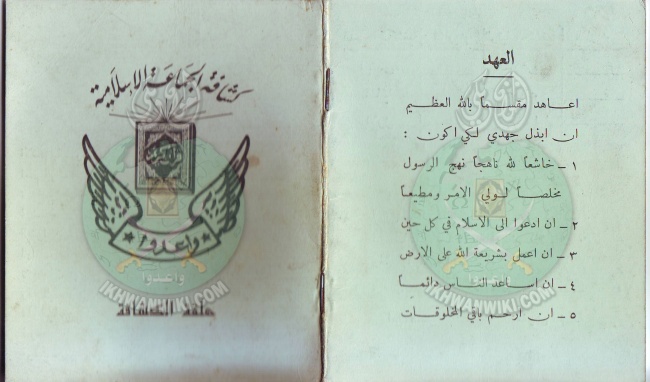 كشافة الجماعة الاسلامية
واعدوا
واعدوا
IKHWANWIKI.COM
العهد
اعاهد مقسماً بالله العظيم
ان ابذل جهدي لكي اكون :
١ – خاشعاً لله ناهجاً نهج الرسول
مخلصاً لولي الامر ومطيعاً
٢ – ان ادعوا الى الاسلام في كل حين
٣ – ان اعمل بشريعة الله على الارض
٤ – ان اساعد الناس دائماً
٥ – ان ارحم باقي المخلوقات
IKHWANWIKI.COM